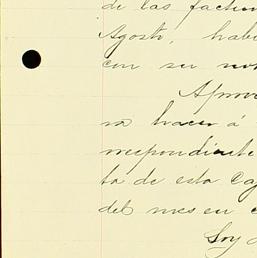 de las factur
Agosto, habi
con su nom
Aprove
na hacer á
rrespondiente
ta de esta Ca
del mes en c
Soy d